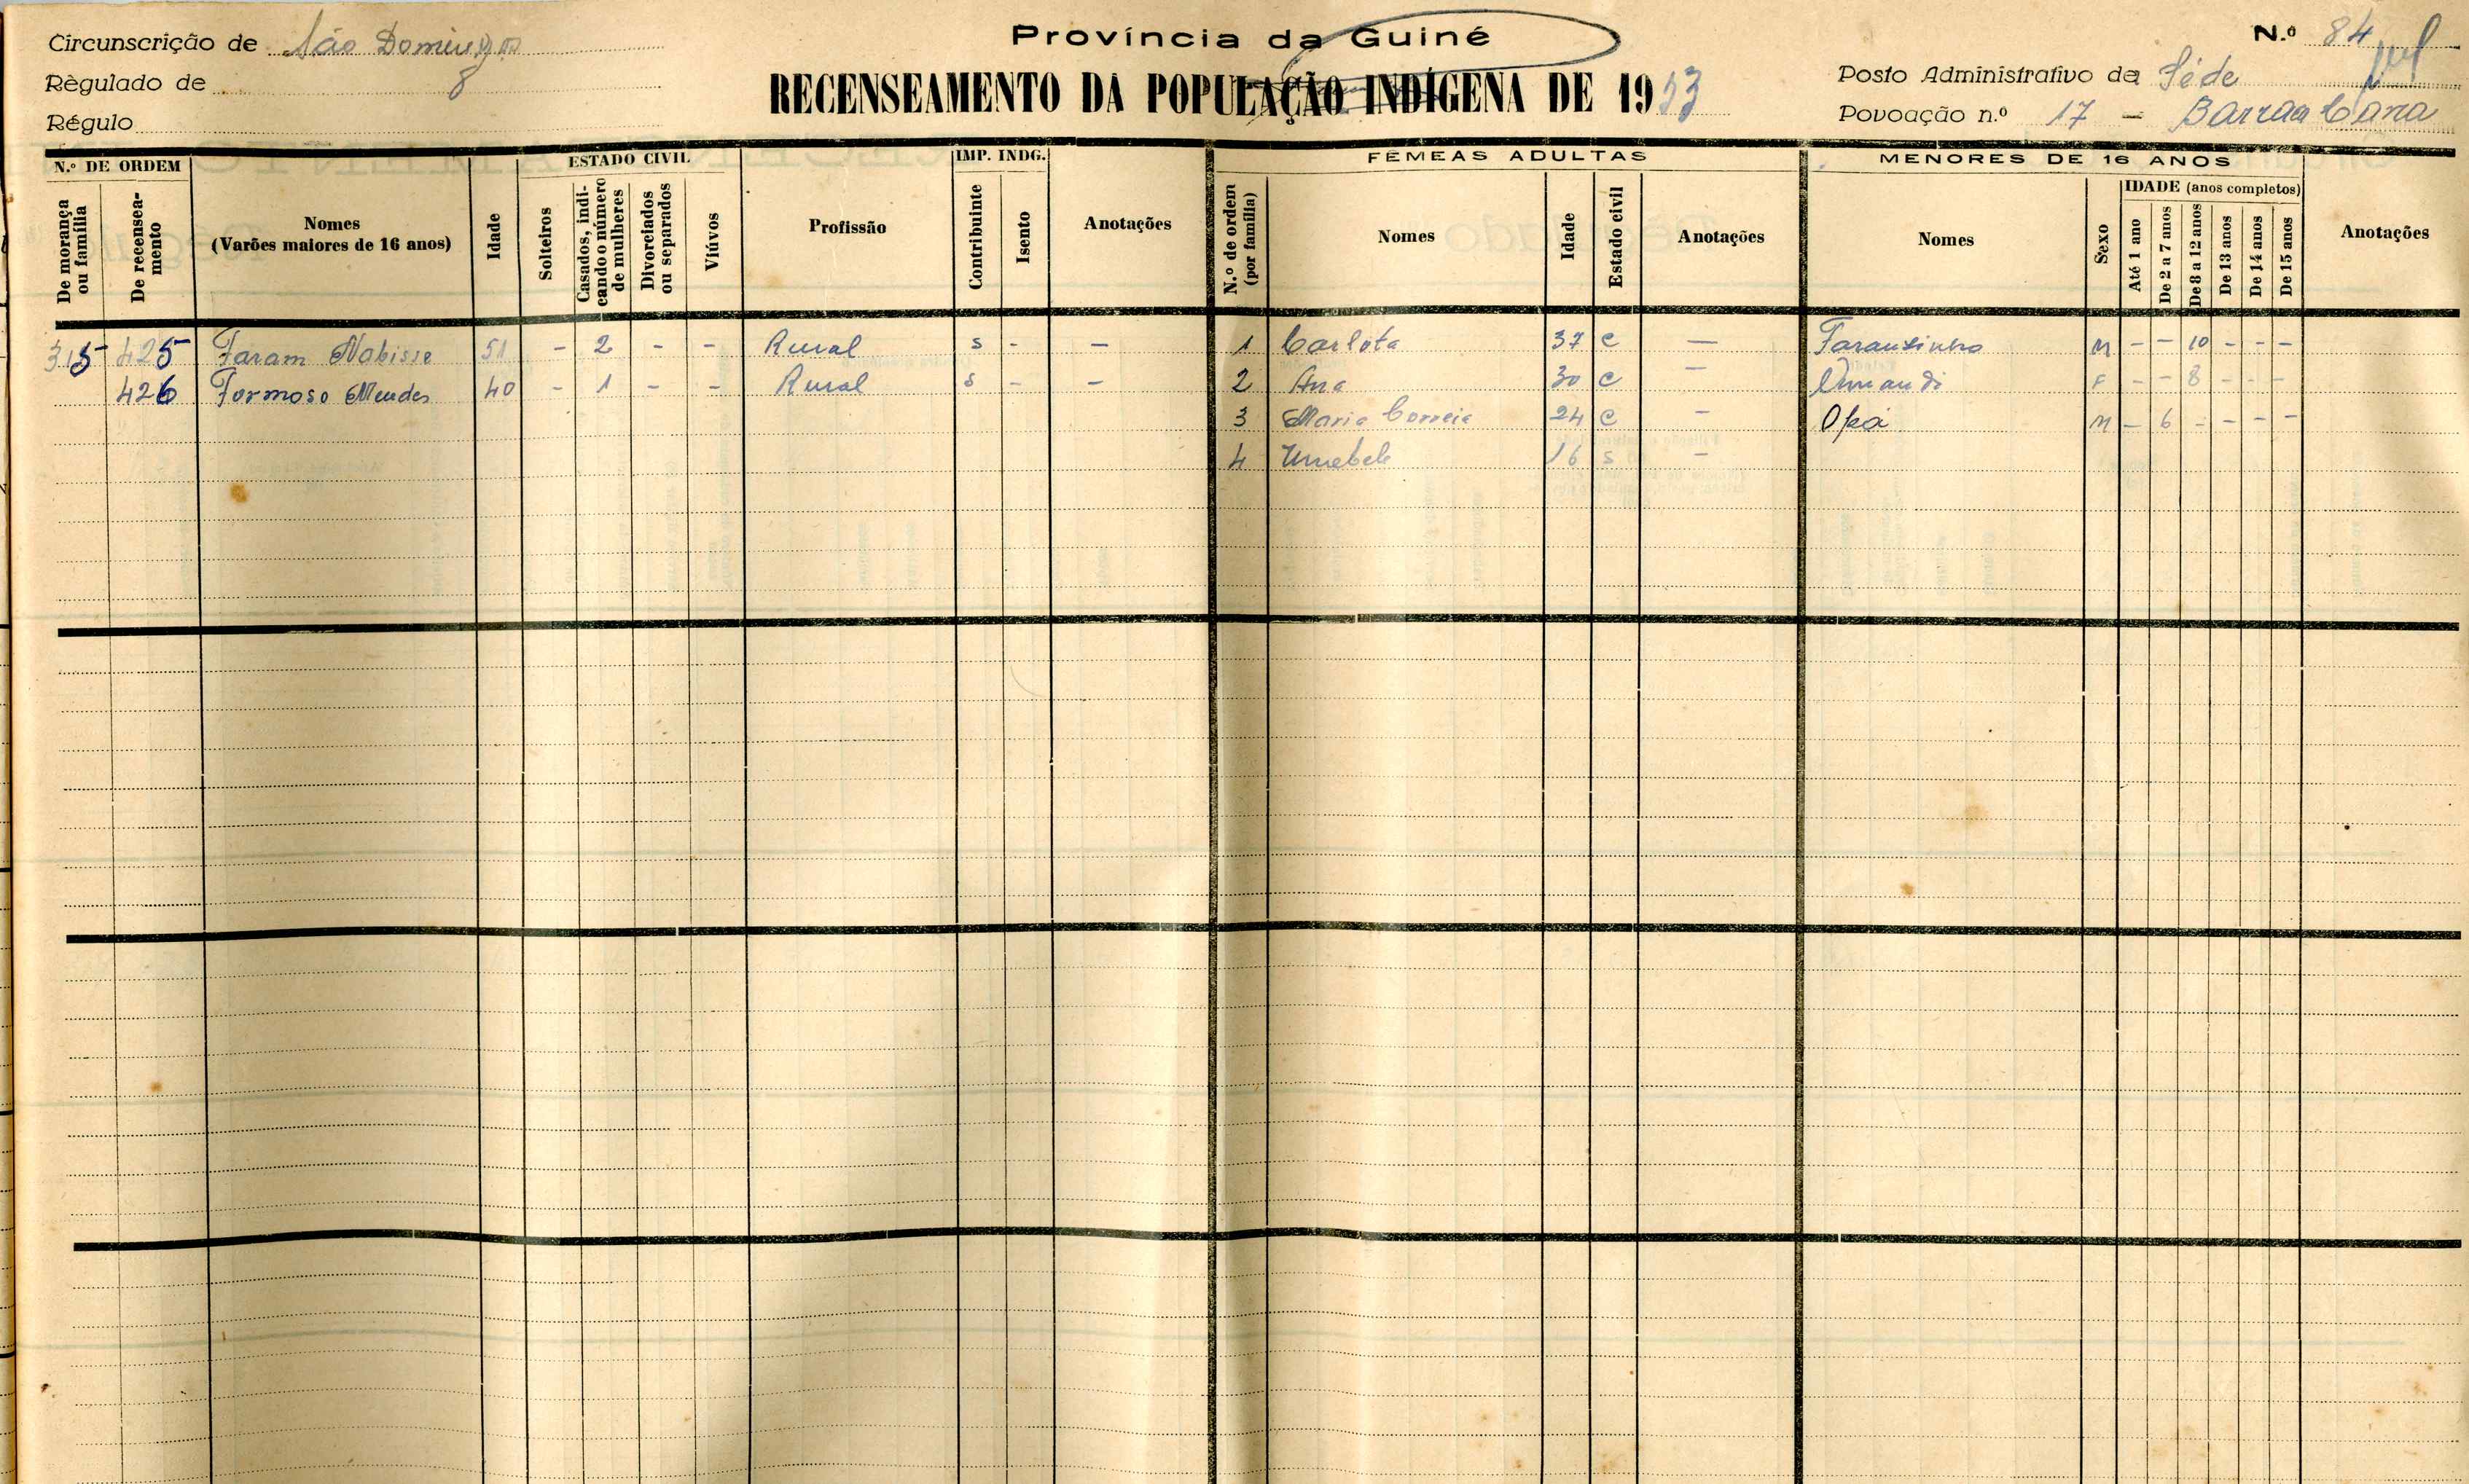 Província da Guiné
Circunscrição de São Domingos
N.º 84
RECENSEAMENTO DA POPULAÇÃO INDÍGENA DE 1953
Règulado de
Posto Administrativo da Séde
Régulo
Povoação n.º 17 -
N.º DE ORDEM
ESTADO CIVIL
IMP. INDG.
FÊMEAS ADULTAS
MENORES DE 16 ANOS
De morança ou família
De recenseamento
Nomes
(Varões maiores de 16 anos)
Idade
Solteiros
Casados, indicando o número de mulheres
Divorciados ou separados
Viúvos
Profissão
Contribuinte
Isento
Anotações
N.º de ordem (por família)
Nomes
Idade
Estado civil
Anotações
Nomes
Sexo
IDADE (anos completos)
Até 1 ano
De 2 a 7 anos
De 8 a 12 anos
De 13 anos
De 14 anos
De 15 anos
Anotações
315 425 Faram Nabisse 51 - 2 - - Rural s - - 1 Carlota 37 c — Faransinho M - - 10 - - -
426 Formoso Mendes 40 - 1 - - Rural s - - 2 Ana 30 c — F - - 8 - - -
3 Maria Correia 24 c - Opá M - 6 - - - -
4 16 s -